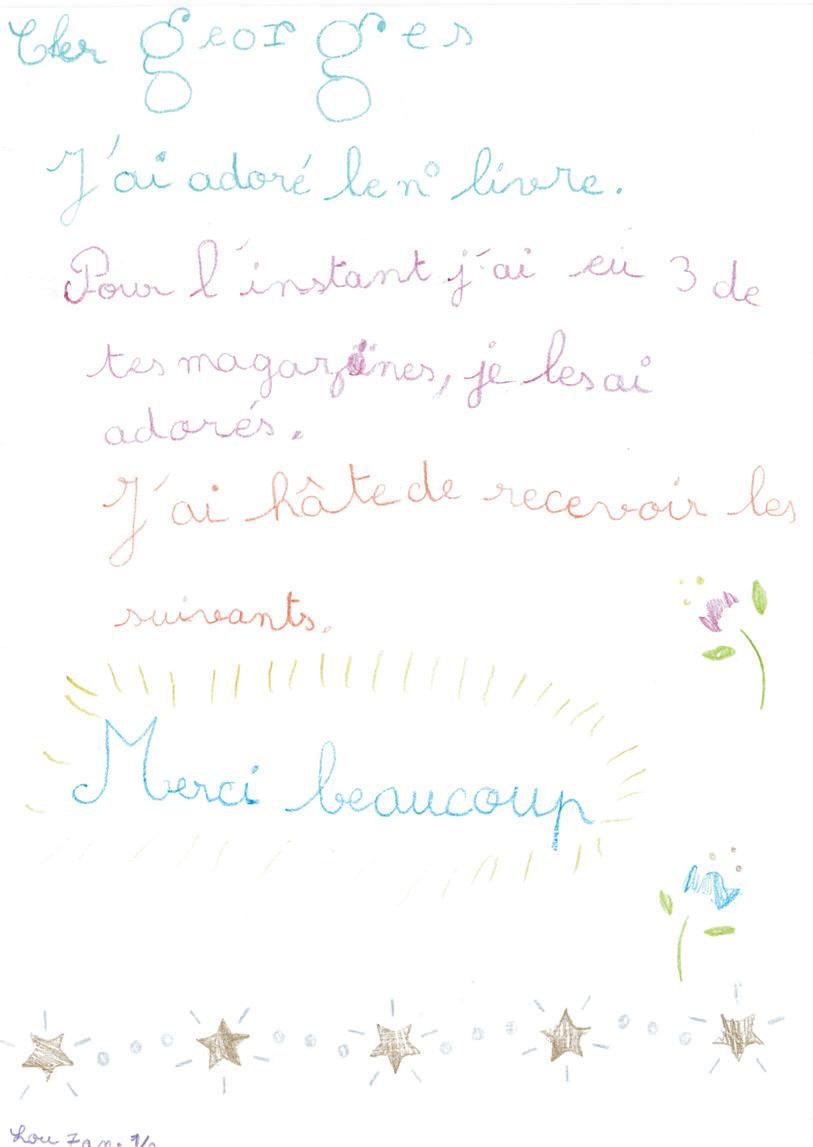 Cher georges
J'ai adoré le n° livre.
Pour l'instant j'ai eu 3 de
tes magazines, je les ai
adorés.
J'ai hâte de recevoir les
suivants.
Merci beaucoup
Lou 7 an